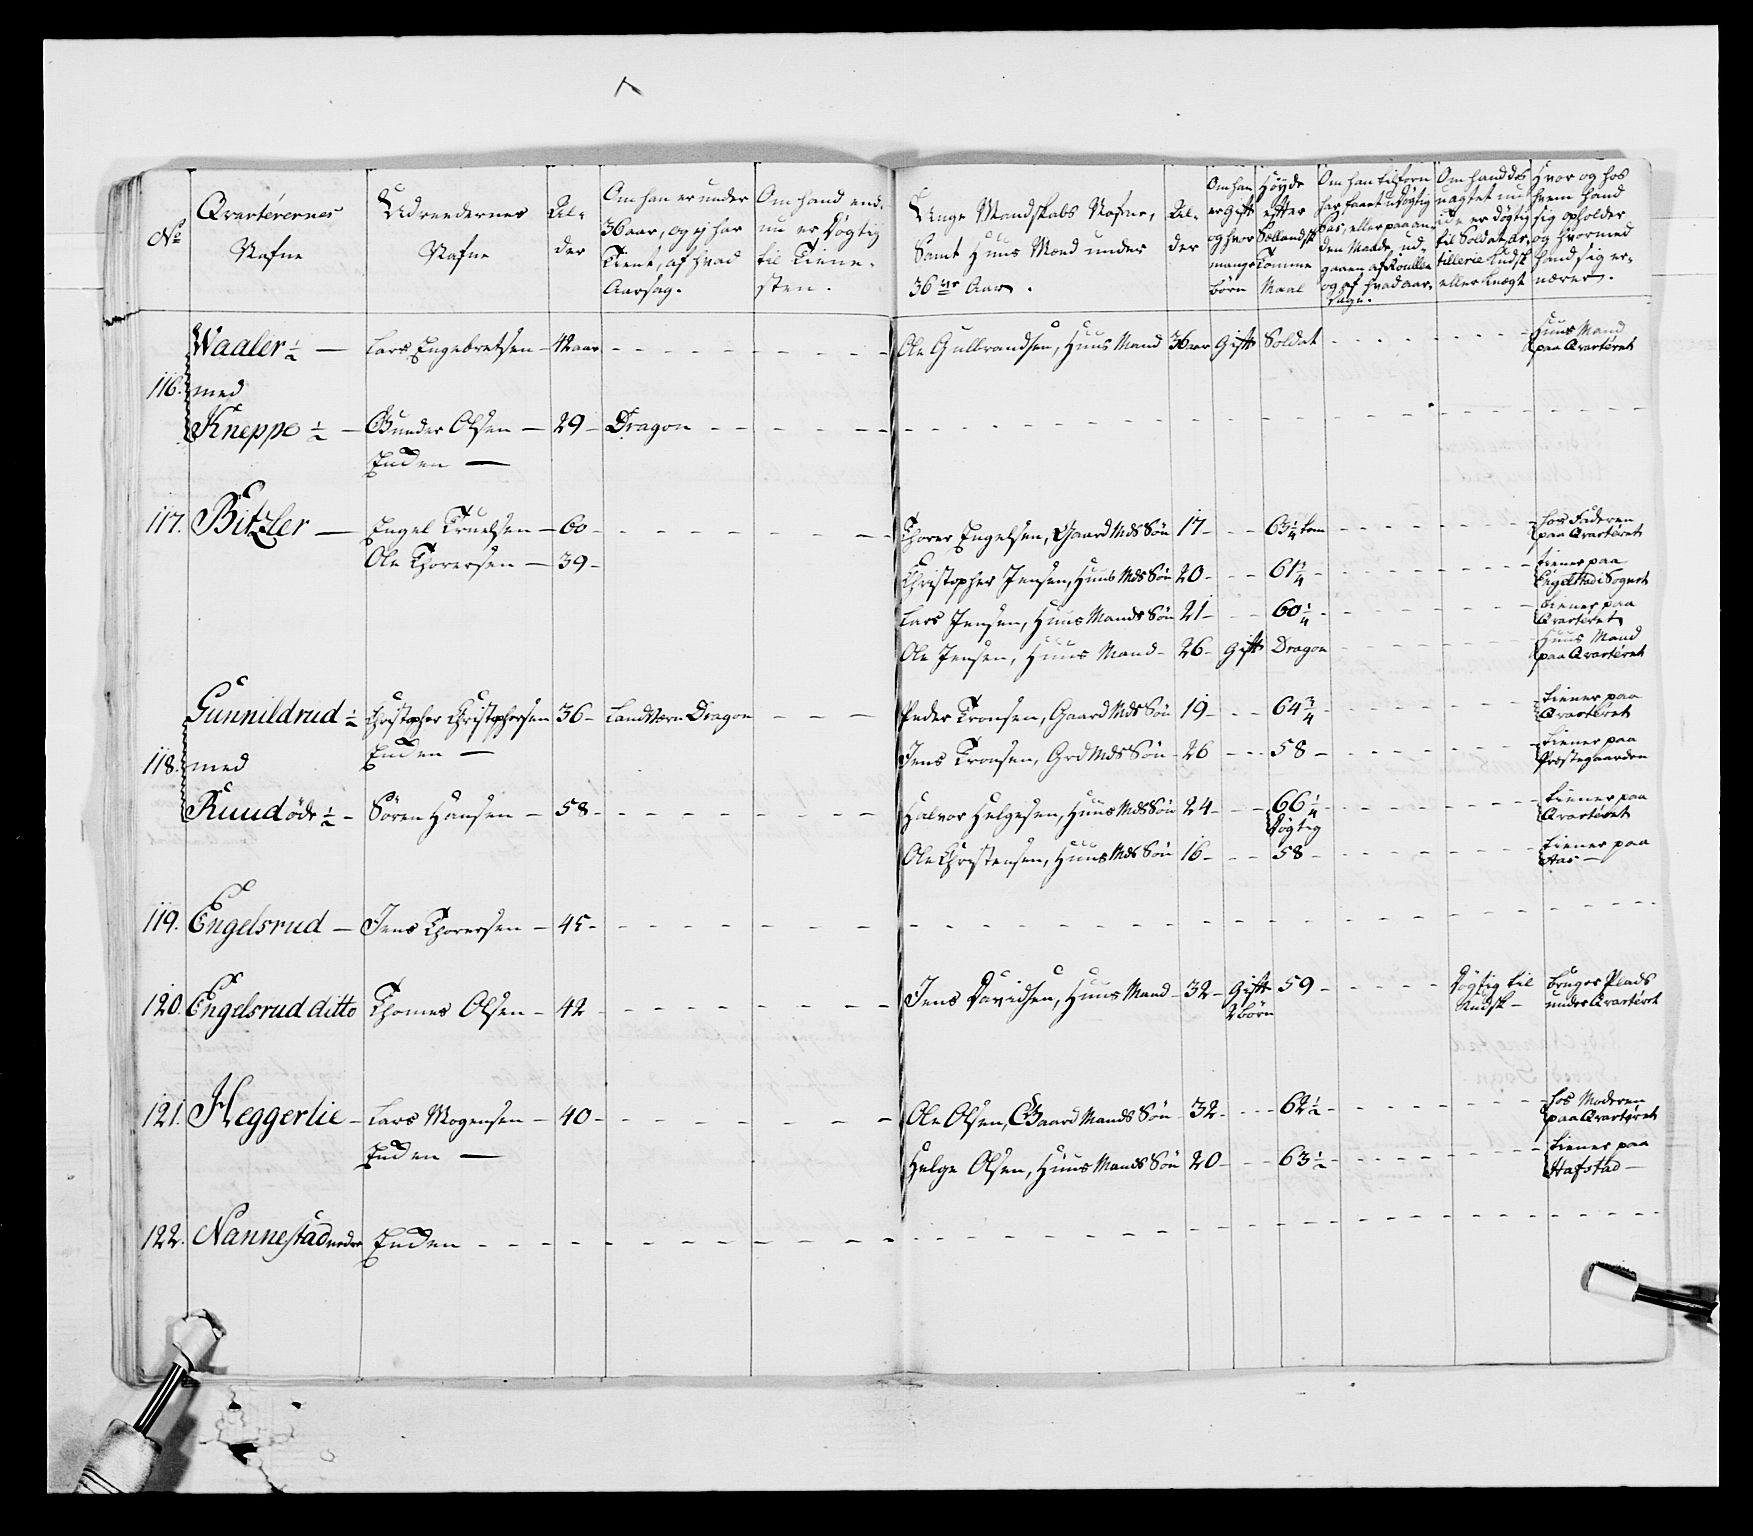 No
Qvarterernes Nafne
Udreedernes Nafne
Al-der
Om han er under 36 aar, og ej har Tient, af hvad Aarsag.
Om hand end-nu er Døgtig til Tiene-sten.
Unge Mandskabs Nafne, Samt Huus Mænd under 36 Aar.
Al-der
Om han er Gift og hvor mange børn
Høyde efter Sællandsk Tomme Maal
Om han tilforn har faaet udøgtig Pas, eller paa an-den Maade, ud-gaaen af Roullen og af hvad aar-sage.
Om hand des uagtet nu er døgtig til Soldat, Ar-tillerie Kudsk eller Knegt
Hvor og hos hvem hand sig opholder og hvormed hand sig er-nærer.
Waaler ½ — Lars Engebretsen - 42 aar
Ole Gulbrandsen, Huus Mand 36 aar Gift Soldat
Huus Mand paa Qvarteret
116. med
Kneppe ½ — Gunder Olsen — 29 - Dragon
Enken —
117. Bitzler — Engel Truelsen — 60 -
Thorer Engelsen, Gaard Mds Søn 17 - 63¼ tom
hos Faderen paa Qvarteret
Ole Thorersen — 39 -
Christopher Jensen, Huus Mds Søn 20 - 61¾
tiener paa Engelstad i Sognet
Lars Jensen, Huus Mands Søn 21 - 60¼
tiener paa Qvarteret
Ole Jensen, Huus Mand - 26 - Gift Dragon
Huus Mand paa Qvarteret
Gunnildrud ½ Christopher Christophersen 36 - Landværn Dragon
Peder Tronsen, Gaard Mds Søn 19 - 64¾
tiener paa Qvarteret
Enken —
118. med
Jens Tronsen, Grd Mds Søn - 26 - 58 -
tiener paa Præstegaarden
Ruud øde ½ - Sören Hansen - 58 -
Halvor Helgesen, Huus Mds Søn 24 - 66¼ Døgtig
tiener paa Qvarteret
Ole Christensen, Huus Mds Søn 16 - 58 -
tiener paa Aas —
119. Engelsrud — Jens Thorersen - 45 -
120. Engelsrud ditto Thomes Olsen - 42
Jens Davidsen, Huus Mand - 32 - Gift 2 børn 59 -
Døgtig til Kudsk -
bruger Plads under Qvarteret
121. Heggerlie - Lars Mogensen - 40 -
Ole Olsen, Gaard Mands Søn - 32 - 62½
hos Moderen paa Qvarteret
Enken —
Helge Olsen, Huus Mands Søn 20 - 63½
tiener paa Hafstad —
122. Nannestad nedre Enken